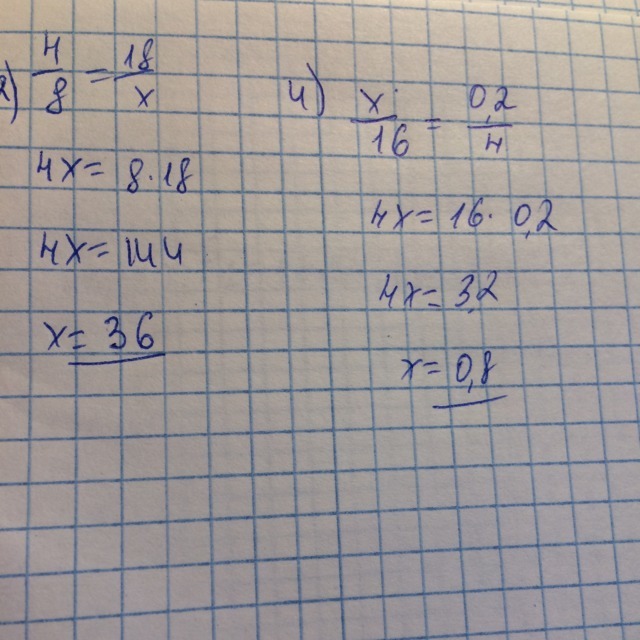 2) 4/8 = 18/x
4x = 8·18
4x = 144
x = 36
4) x/16 = 0,2/4
4x = 16·0,2
4x = 3,2
x = 0,8